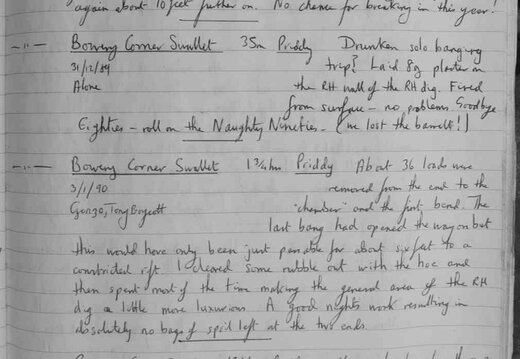 again about 10 feet further on. No chance for breaking in this year!
-"- Bowery Corner Swallet 35m Priddy Drunken solo banging
31/12/89 trip? Laid 8g plaster on
Alone the RH wall of the RH dig. Fired
from surface - no problems. Goodbye
Eighties - roll on the Naughty Nineties. (we lost the barrels!)
-"- Bowery Corner Swallet 1 3/4 hrs Priddy About 36 loads were
3/1/90 removed from the end to the
Gonzo, Tony Boycott "chamber" and the first bend. The
last bang had opened the way on but
this would have only been just passable for about six feet to a
constricted rift. I cleared some rubble out with the hoe and
then spent most of the time making the general area of the RH
dig a little more luxurious. A good nights work resulting in
absolutely no bags of spoil left at the two ends.